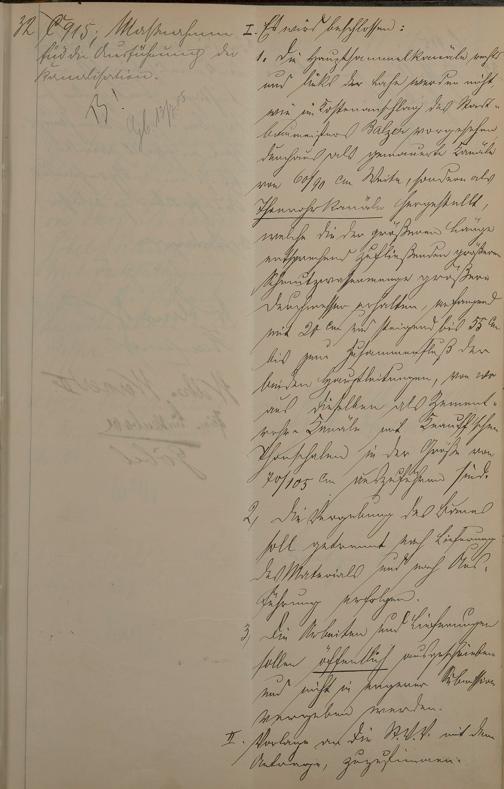 32 C 915, Maßnahmen
für die Ausführung der
Kanalisation.
B!
I. Es wird beschlossen:
1. Die Hauptsammelkanäle rechts
und links der Lahn werden nicht,
wie im Kostenanschlag des Stadt-
baumeisters vorgesehen,
durchaus als gemauerte Kanäle
von 60/90 cm Weite, sondern als
Thonrohrkanäle hergestellt,
welche die der größeren Länge
entsprechend zufließenden größeren
Schmutzwassermenge größere
Durchmesser erhalten, anfangend
mit cm und steigend bis 55 cm
bis zum Zusammenfluß der
beiden Hauptleitungen, von wo
aus dieselben als Zement-
rohr-Kanäle mit
Thonschalen in der Größe von
70/105 cm auszuführen sind.
2, Die Vergebung des Baues
soll getrennt nach Lieferung
des Materials und nach Aus-
führung erfolgen.
3, Die Arbeiten und Lieferungen
sollen öffentlich ausgeschrieben
und nicht in engerer Submission
vergeben werden.
II. Vorlage an die St.V.V. mit dem
Antrage, zuzustimmen.